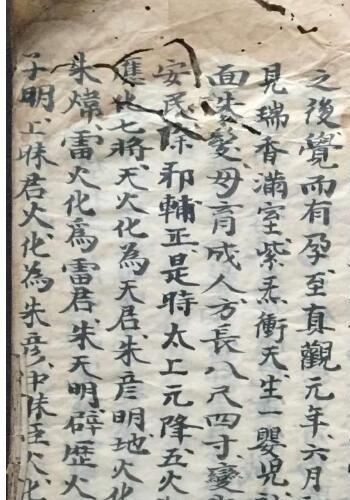 之後覺而有孕至貞觀元年六月
見瑞香滿室紫炁衝天生一嬰児
面朱髮母育成人方長八尺四寸
安民除邪輔正是時太上元降五火
應化七將天火化為天君朱彥明地火化
朱煒雷火化為雷君朱天明霹歷火
子明上昧君火化為朱彥中昧臣火化